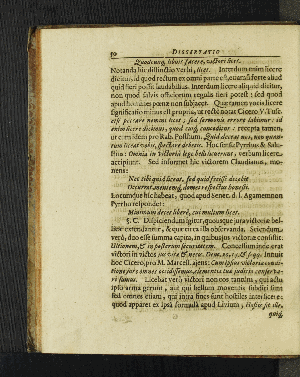 50 DISSERTATIO
Quodcunq; libuit facere, victori licet.
Notanda hic distinctio verbi, licet. Interdum enim licere
dicimus id quod rectum ex omni parte est, quamsi forte aliud
quid fieri posset laudabilius. Interdum licere aliquid dicitur,
non quod salvis officiorum regulis fieri potest: sed quod
apud homines poenae non subjacet. Quae tamen vocis licere
significatio minus est propria, ut recte notat Cicero
esse peccare nemini licet: sed sermonis errore labimur: id
enim licere dicimus, quod cuiq; conceditur: recepta tamen,
ut enim idem pro Rab. Posthum. Quid deceat nos, non quan-
tum liceat vobis, spectare debere. Huc
omnia in victoria lege belli licuerunt; verbum licere,
accipitur. Sed informet hic victorem Claudianus, mo-
nens:
Nec tibi quid liceat, sed quid fecisse decebit
Occurrat, mentemq; domet respectus honesti.
Locumque hic habeat, quod apud Senec. d. l. Agamemnon
Pyrrho respondet:
Minimum decet libere, cui multum licet.
§. C. Dispiciendum igitur, quousque jura victoriae bel-
lanae extendantur, & quae circa illa observanda. Sciendum,
vero, duo esse summa capita, in quibus jus victoriae consistit:
Ultionem, & in posterum securitatem. Concessum inde erat
victori in victos jus vitae & necis.
hoc Cicero, pro M. Marcell. ajens: Cum ipsius victoriae conditi-
one jure omnes occidissemus, clementiae tuae judicio conserva-
ti sumus. Licebat vero victori non eos tantum, qui actu
ipso arma gerunt, aut qui bellum moventis subditi sunt
sed omnes etiam, qui intra fines sunt hostiles interficere:
quod apparet ex ipsa formula apud Livium, Hostis sit ille,
quiq;